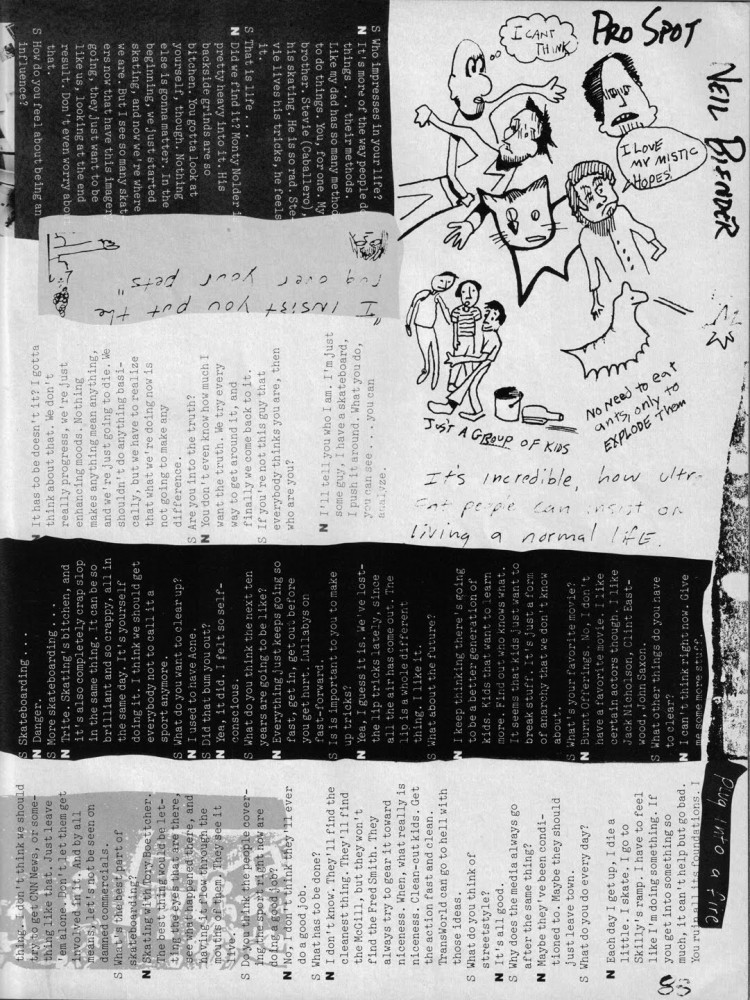 PRO SPOT
NEIL BLENDER
I CANT
THINK
I LOVE
MY MISTIC
HOPES!
JUST A GROUP OF KIDS
No Need to eat
ants, only to
EXPLODE them
It's incredible how ultr-
Fat people can insist on
living a normal life.
S Who impresses in your life?
N It's more of the way people d
things.... their methods.
Like my dad has so many metho
to do things. You, for one. My
brother. Stevie (Caballero),
his skating. He is so rad. Ste
vie lives his tricks, he feels
it.
S That is life....
N Did we find it? Monty Nolder i
pretty heavy into it. His
backside grinds are so
bitchen. You gotta look at
yourself, though. Nothing
else is gonna matter. In the
beginning, we just started
skating, and now we're where
we are. But I see so many skat
ers now that have this image
going, they just want to be
like us, looking at the end
result. Don't even worry abou
that.
S How do you feel about being an
influence?
"I INSIST YOU PUT the
rug over your pets"
N It has to be doesn't it? I gotta
think about that. We don't
really progress, we're just
enhancing moods. Nothing
makes anything mean anything,
and we're just going to die. We
shouldn't do anything basi-
cally, but we have to realize
that what we're doing now is
not going to make any
difference.
S Are you into the truth?
N You don't even know how much I
want the truth. We try every
way to get around it, and
finally we come back to it.
S If you're not this guy that
everybody thinks you are, then
who are you?
N I'll tell you who I am. I'm just
some guy, I have a skateboard,
I push it around. What you do,
you can see.... you can
analyze.
S Skateboarding....
N Danger.
S More skateboarding....
N Trite. Skating's bitchen, and
it's also completely crap slop
in the same thing. It can be so
brilliant and so crappy, all in
the same day. It's yourself
doing it. I think we should get
everybody not to call it a
sport anymore.
S What do you want to clear up?
N I used to have Acne.
S Did that bum you out?
N Yea, it did. I felt so self-
conscious.
S What do you think the next ten
years are going to be like?
N Everything just keeps going so
fast, get in, get out before
you get hurt. Lullabys on
fast-forward.
S Is is important to you to make
up tricks?
N Yea, I guess it is. We've lost-
the lip tricks lately, since
all the air has come out. The
lip is a whole different
thing. I like it.
S What about the future?
N I keep thinking there's going
to be a better generation of
kids. Kids that want to learn
more. Find out who knows what.
It seems that kids just want to
break stuff. It's just a form
of anarchy that we don't know
about.
S What's your favorite movie?
N Burnt Offerings. No, I don't
have a favorite movie. I like
certain actors though. I like
Jack Nicholson, Clint East-
wood, John Saxon.
S What other things do you have
to clear?
N I can't think right now. Give
me some more stuff.
thing. I don't think we should
try to get CNN News, or some-
thing like that. Just leave
'em alone. Don't let them get
involved in it. And by all
means, let's not be seen on
damned commercials.
S What's the best part of
skateboarding?
N Skating with Tory Boettcher.
The best thing would be let-
ting the eyes that are there,
see what happened there, and
having it flow through the
mouths of them. They see it
live.
S Do you think the people cover-
ing the sport right now are
doing a good job?
N No, I don't think they'll ever
do a good job.
S What has to be done?
N I don't know. They'll find the
cleanest thing. They'll find
the McGill, but they won't
find the Fred Smith. They
always try to gear it toward
niceness. When, what really is
niceness. Clean-cut kids. Get
the action fast and clean.
TransWorld can go to hell with
those ideas.
S What do you think of
streetstyle?
N It's all good.
S Why does the media always go
after the same thing?
N Maybe they've been condi-
tioned to. Maybe they should
just leave town.
S What do you do every day?
N Each day I get up, I die a
little. I skate. I go to
Skilly's ramp. I have to feel
like I'm doing something. If
you get into something so
much, it can't help but go bad.
You ruin all its foundations. I
Plug into a fire